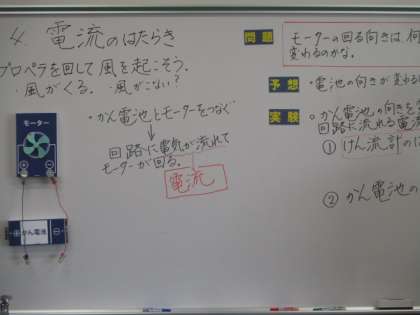 4. 電流のはたらき
プロペラを回して風を起こそう。
・風がくる。 ・風がこない?
・かん電池とモーターをつなぐ
↓
回路に電気が流れて
モーターが回る。
電流
モーター
かん電池
問題
モーターの回る向きは、何
変わるのかな。
予想
・電池の向きが変わる
実験
・かん電池の向きを
回路に流れる電流
① けん流計の
② かん電池の